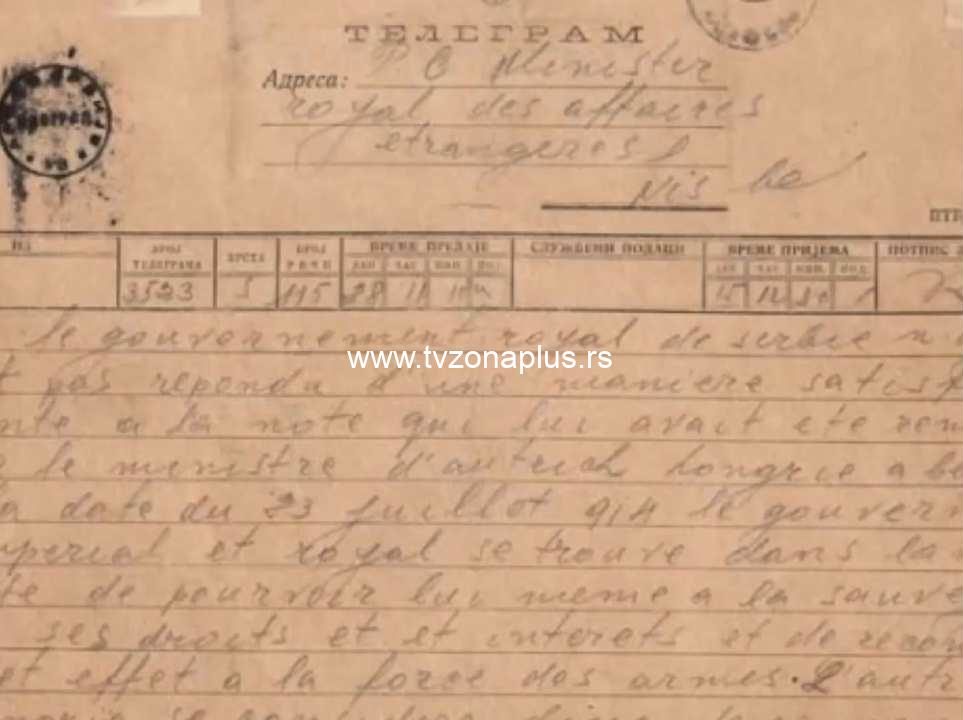 ТЕЛЕГРАМ
Адреса: Minister
royal des affaires
etrangeres
Nis
БРОЈ ТЕЛЕГРАМА ВРСТА БРОЈ РЕЧИ ВРЕМЕ ПРЕДАЈЕ СЛУЖБЕНИ ПОДАЦИ ВРЕМЕ ПРИЈЕМА ПОТПИС
ДАН ЧАС МИН. ДАН ЧАС МИН.
3523 5 115 28 11 10 15 12 30
le gouvernement royal de serbie n
www.tvzonaplus.rs
pas repondu d'une maniere satisf
nte a la note qui lui avait ete rem
le ministre d'autrich hongrie a be
a date du 23 juillot 914 le gouver
mperial et royal se trouve dans la
te de pourvoir lui meme a la sauve
ses droits et et interets et de recou
et effet a la force des armes. L'autr